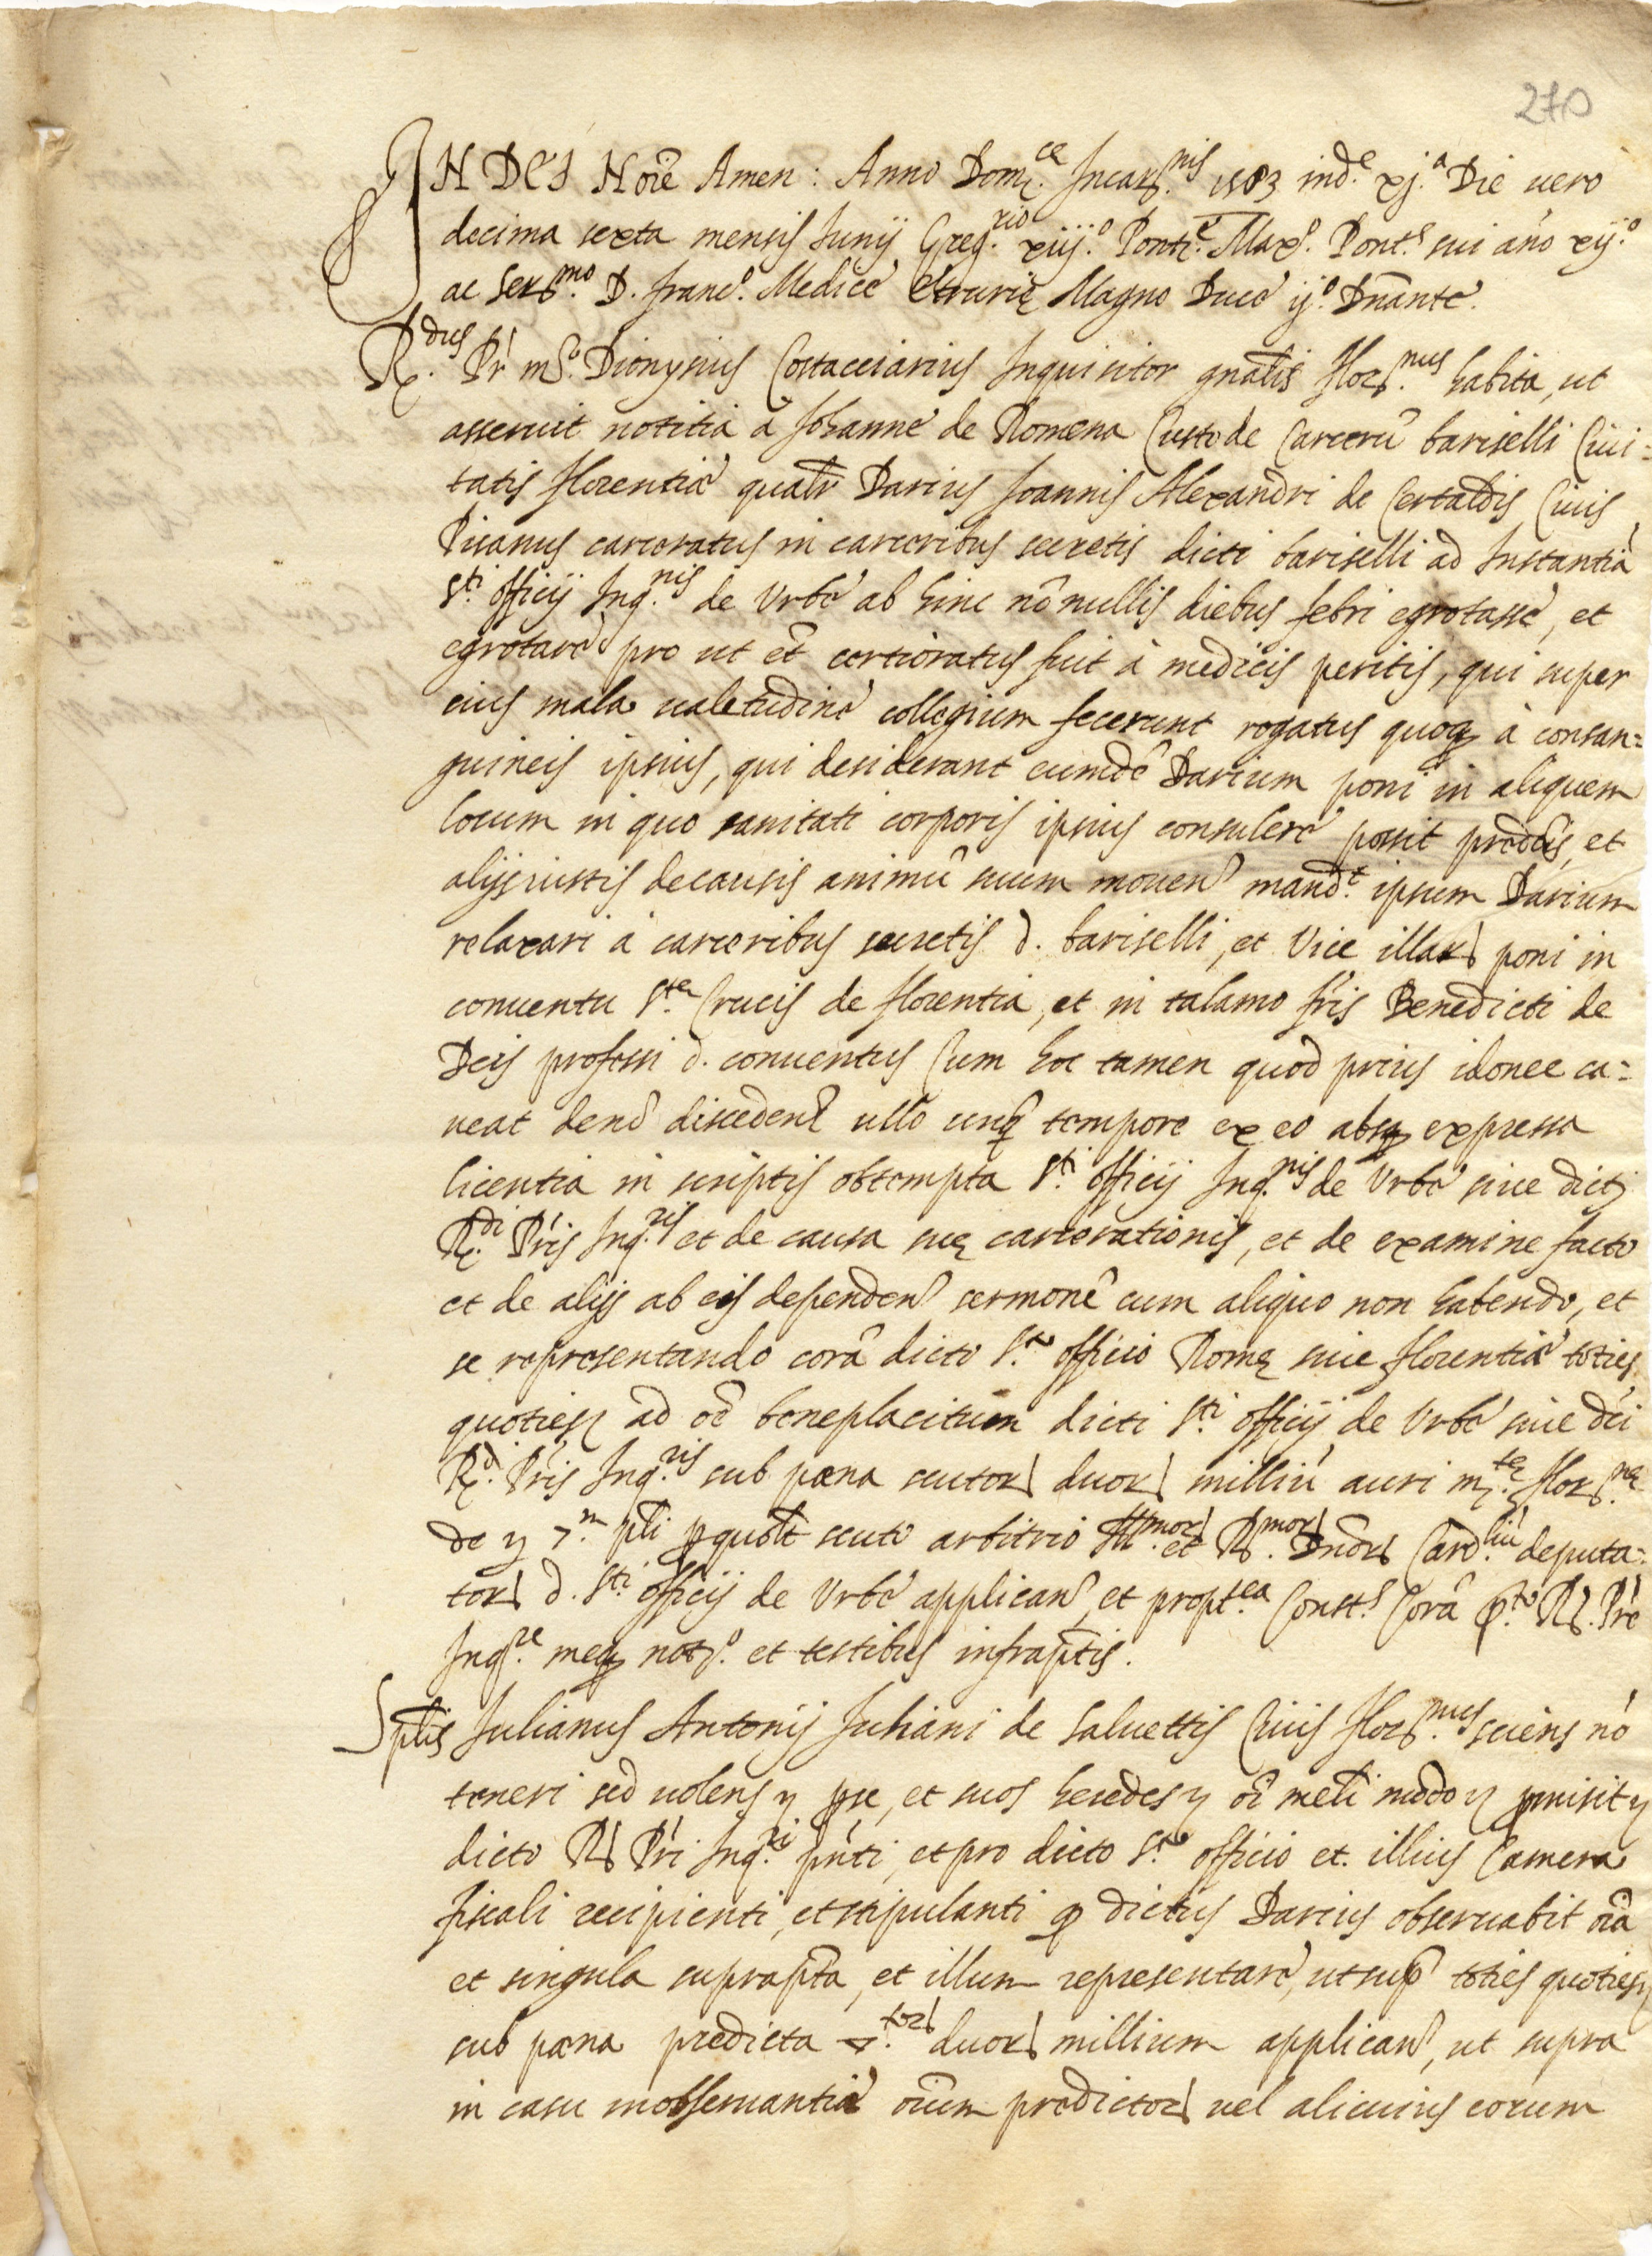 270
IN DEI Noiē Amen: Anno Domᶜᵉ. Incarⁿⁱˢ. 1583 indᵉ. xj.ᵃ Die uero
decima sexta mensis Junij Greg.ʳⁱᵒ xiij.º Pontᵉ. Maxº. Pontˢ. sui año xij.º
ac Ser.ᵐᵒ D. francº. Medice Etrurię Magno Duce ij.º Dñante.
R.ᵈᵘˢ Pr̄ mº. Dionysius Costacciarius Inquisitor gñalis flor.ⁿᵘˢ habita, ut
asseruit notitia a Johanne de Romena Custode Carcerū bariselli Ciui=
tatis florentiæ qualr̄ Darius Joannis Alexandri de Certaldis Ciuis
Pisanus carceratus in carceribus secretis dicti bariselli ad Instantiā
S.ᵗⁱ officij Inq.ⁿⁱˢ de Vrbe ab hinc nō nullis diebus febri egrotasse, et
egrotare pro ut et̄ certioratus fuit à medicis peritis, qui super
eius mala ualetudine collegium fecerunt rogatus quoq à consan=
guineis ipsius, qui desiderant eumdē Darium poni in aliquem
locum in quo sanitati corporis ipsius consulere possit predc̄is, et
alijs iustis de causis animū suum mouen̄ mand.ᵗ ipsum Darium
relaxari à carceribus secretis d. bariselli, et Vice illar̄ poni in
conuentu S.ᵗᵉ Crucis de florentia, et in talamo fr̄is Benedicti de
Deis professi d. conuentus Cum hoc tamen quod prius idonee ca=
ueat de nō discedendo ullo unq̄ tempore ex eo absq expressa
licentia in scriptis obtempta S.ᵗⁱ officij Inq.ⁿⁱˢ de Vrbe siue dicti
R.ᵈⁱ Pr̄is Inq.ʳⁱˢ et de causa suę carcerationis, et de examine facto
et de alijs ab eis dependen̄ sermonē cum aliquo non habendo, et
se representando corā dicto S.ᵗᵒ officio Romę siue florentiæ toties
quoties ad oē beneplacitum dicti S.ᵗⁱ officij de Vrbe siue dc̄i
R.ᵈⁱ Pr̄is Inq.ʳⁱˢ sub pœna scutor̄ duor̄ milliū auri m.ᵗᵉ flor.ⁿᵉ
de 7.ᵐ pli p quolt scuto arbitrio Ill.ᵐᵒʳ et R.ᵐᵒʳ Dñor̄ Card.ˡⁱᵘ deputa=
tor̄ d. S.ᵗⁱ officij de Vrbe applican̄, et propt.ᵉᵃ Const.ˢ Corā p.ᵗᵒ R. Pr̄e
Inq.ʳᵉ meq notº. et testibus infrap̄tis.
Sp̄lis Julianus Antonij Juliani de Saluettis Ciuis flor.ⁿᵘˢ sciens nō
teneri sed uolens p se, et suos heredes oī meli modo promisit
dicto R. Pr̄i Inq.ʳⁱ pn̄ti, et pro dicto S.ᵗᵒ officio et illius Camera
fiscali recipienti, et stipulanti q̄ dictus Darius obseruabit oīa
et singula suprap̄ta, et illum representare, ut sup̄ toties quoties
sub pœna predicta ▽.ᵗᵒʳ duor̄ millium applican̄, ut supra
in casu inobseruantiæ oīum predictor̄ uel alicuius eorum